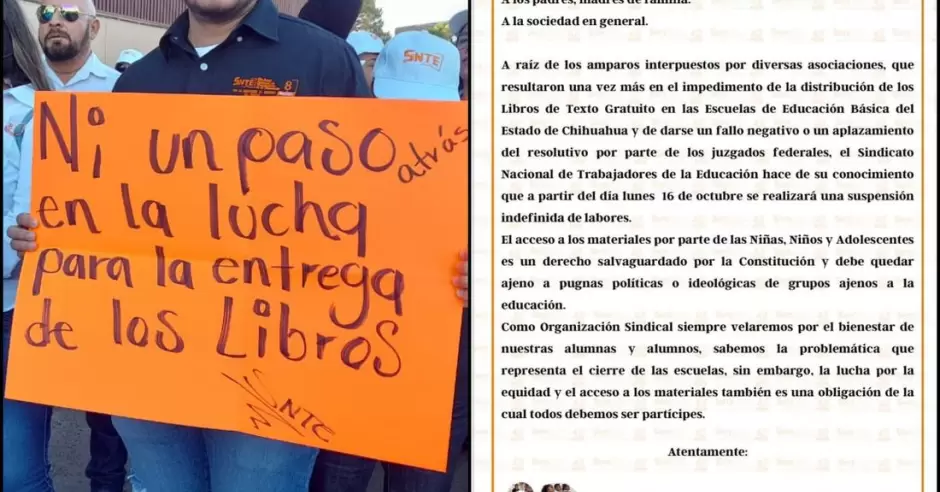 SNTE
SNTE
8
Ni un paso
atrás
en la lucha
para la entrega
de los Libros
SNTE
A los padres, madres de familia.
A la sociedad en general.
A raíz de los amparos interpuestos por diversas asociaciones, que
resultaron una vez más en el impedimento de la distribución de los
Libros de Texto Gratuito en las Escuelas de Educación Básica del
Estado de Chihuahua y de darse un fallo negativo o un aplazamiento
del resolutivo por parte de los juzgados federales, el Sindicato
Nacional de Trabajadores de la Educación hace de su conocimiento
que a partir del día lunes 16 de octubre se realizará una suspensión
indefinida de labores.
El acceso a los materiales por parte de las Niñas, Niños y Adolescentes
es un derecho salvaguardado por la Constitución y debe quedar
ajeno a pugnas políticas o ideológicas de grupos ajenos a la
educación.
Como Organización Sindical siempre velaremos por el bienestar de
nuestras alumnas y alumnos, sabemos la problemática que
representa el cierre de las escuelas, sin embargo, la lucha por la
equidad y el acceso a los materiales también es una obligación de la
cual todos debemos ser partícipes.
Atentamente: